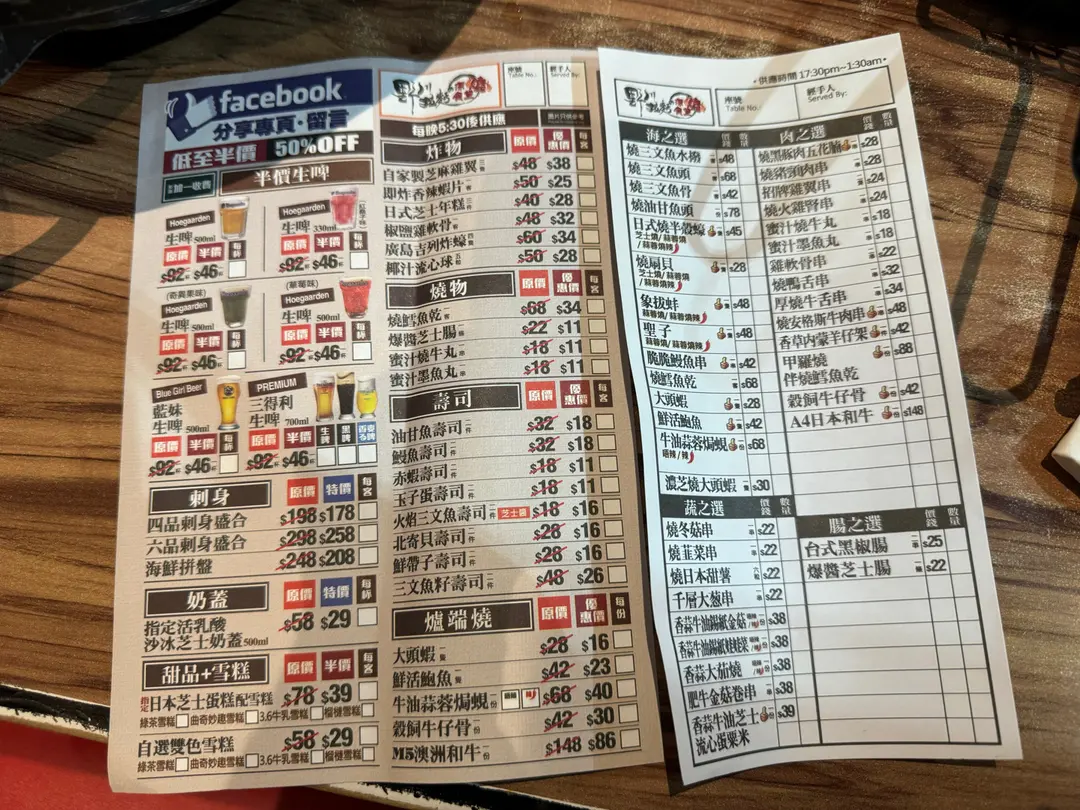 facebook
分享專頁・留言
低至半價 50%OFF
加一收費
半價生啤
Hoegaarden
生啤 500ml
原價 半價 每杯
$92杯 $46杯
Hoegaarden
生啤 330ml
原價 半價 每杯
$92杯 $46杯
(奇異果味)
Hoegaarden
生啤 500ml
原價 半價 每杯
$92杯 $46杯
(草莓味)
Hoegaarden
生啤 500ml
原價 半價 每杯
$92杯 $46杯
Blue Girl Beer
藍妹
生啤 500ml
原價 半價 每杯
$92杯 $46杯
PREMIUM
三得利
生啤 700ml
原價 半價 生啤 黑啤
$92杯 $46杯
刺身 原價 特價 每客
四品刺身盛合 $198 $178
六品刺身盛合 $298 $258
海鮮拼盤 $248 $208
奶蓋 原價 特價 每杯
指定活乳酸
沙冰芝士奶蓋 500ml $58 $29
甜品+雪糕 原價 半價 每客
指定 日本芝士蛋糕配雪糕 $78 $39
綠茶雪糕 曲奇妙趣雪糕 3.6牛乳雪糕 榴槤雪糕
自選雙色雪糕 $58 $29
綠茶雪糕 曲奇妙趣雪糕 3.6牛乳雪糕 榴槤雪糕
座號 Table No.:
經手人 Served By:
每晚5:30後供應
圖片只供參考
炸物 原價 優惠價 每客
自家製芝麻雞翼 $48 $38
即炸香辣蝦片 $50 $25
日式芝士年糕 $40 $28
椒鹽雞軟骨 $48 $32
廣島吉列炸蠔 $60 $34
椰汁流心球 $50 $28
燒物 原價 優惠價 每客
燒鱈魚乾 $68 $34
爆醬芝士腸 $22 $11
蜜汁燒牛丸 $18 $11
蜜汁墨魚丸 $18 $11
壽司 原價 優惠價 每客
油甘魚壽司 $32 $18
鰻魚壽司 $32 $18
赤蝦壽司 $18 $11
玉子蛋壽司 $18 $11
火焰三文魚壽司 芝士醬 $18 $16
北寄貝壽司 $28 $16
鮮帶子壽司 $28 $16
三文魚籽壽司 $48 $26
爐端燒 原價 優惠價 每份
大頭蝦 $28 $16
鮮活鮑魚 $42 $23
牛油蒜蓉焗蜆 $68 $40
穀飼牛仔骨 $42 $30
M5澳洲和牛 $148 $86
・供應時間 17:30pm~1:30am・
座號 Table No.:
經手人 Served By:
海之選 價錢 數量
燒三文魚水撈 $48
燒三文魚頭 $68
燒三文魚骨 $42
燒油甘魚頭 $78
日式燒半殼蠔 $45
芝士燒/蒜蓉燒
/蒜蓉燒辣
燒扇貝 $28
芝士燒/蒜蓉燒
/蒜蓉燒辣
象拔蚌 $48
蒜蓉燒/蒜蓉燒辣
聖子 $48
蒜蓉燒/蒜蓉燒辣
脆脆鰻魚串 $42
燒鱈魚乾 $68
大頭蝦 $28
鮮活鮑魚 $42
牛油蒜蓉焗蜆 $68
唔辣/辣
濃芝燒大頭蝦 $30
蔬之選 價錢 數量
燒冬菇串 $22
燒韮菜串 $22
燒日本甜薯 $22
千層大葱串 $22
香蒜牛油錫紙金菇 $38
香蒜牛油錫紙娃娃菜 $38
香蒜大茄燒 $38
肥牛金菇卷串 $38
香蒜牛油芝士 $39
流心蛋粟米
肉之選 價錢 數量
燒黑豚肉五花腩 $28
燒豬頸肉串 $28
招牌雞翼串 $24
燒火雞腎串 $24
蜜汁燒牛丸 $18
蜜汁墨魚丸 $18
雞軟骨串 $22
燒鴨舌串 $32
厚燒牛舌串 $34
燒安格斯牛肉串 $48
香草內蒙羊仔架 $42
甲羅燒 $88
伴燒鱈魚乾
穀飼牛仔骨 $42
A4日本和牛 $148
腸之選 價錢 數量
台式黑椒腸 $25
爆醬芝士腸 $22